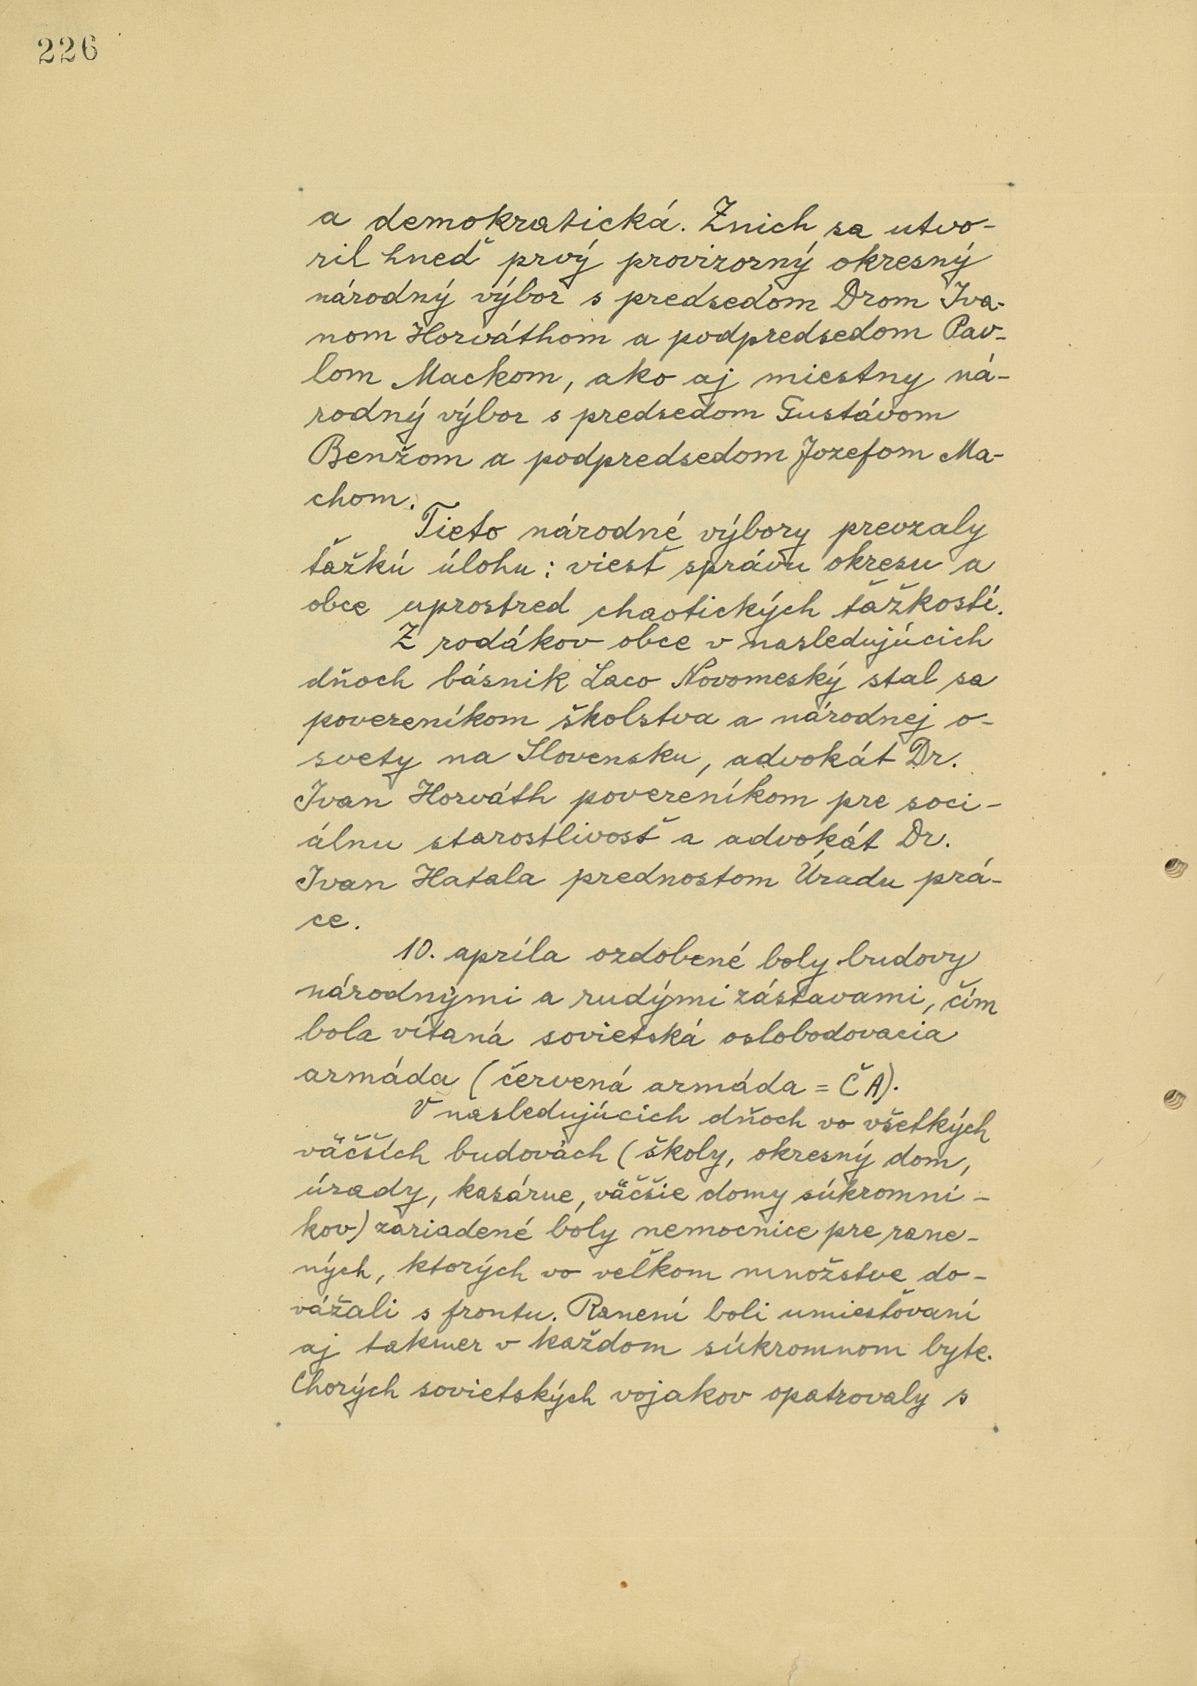 226
a demokratická. Z nich sa utvo-
ril hneď prvý provizorný okresný
národný výbor s predsedom Drom Iva-
nom Horváthom a podpredsedom Pav-
lom Mackom, ako aj miestny ná-
rodný výbor s predsedom Gustávom
Benžom a podpredsedom Jozefom Ma-
chom.
Tieto národné výbory prevzaly
ťažkú úlohu: viesť správu okresu a
obce uprostred chaotických ťažkostí.
Z rodákov obce v nasledujúcich
dňoch básnik Laco Novomeský stal sa
povereníkom školstva a národnej o-
svety na Slovensku, advokát Dr.
Ivan Horváth povereníkom pre soci-
álnu starostlivosť a advokát Dr.
Ivan Hatala prednostom Úradu prá-
ce.
10. apríla ozdobené boly budovy
národnými a rudými zástavami, čím
bola vítaná sovietská oslobodovacia
armáda (červená armáda = ČA).
V nasledujúcich dňoch vo všetkých
väčších budovách (školy, okresný dom,
úrady, kasárne, väčšie domy súkromní-
kov) zariadené boly nemocnice pre rane-
ných, ktorých vo veľkom množstve do-
vážali s frontu. Ranení boli umiestňovaní
aj takmer v každom súkromnom byte.
Chorých sovietských vojakov opatrovaly s